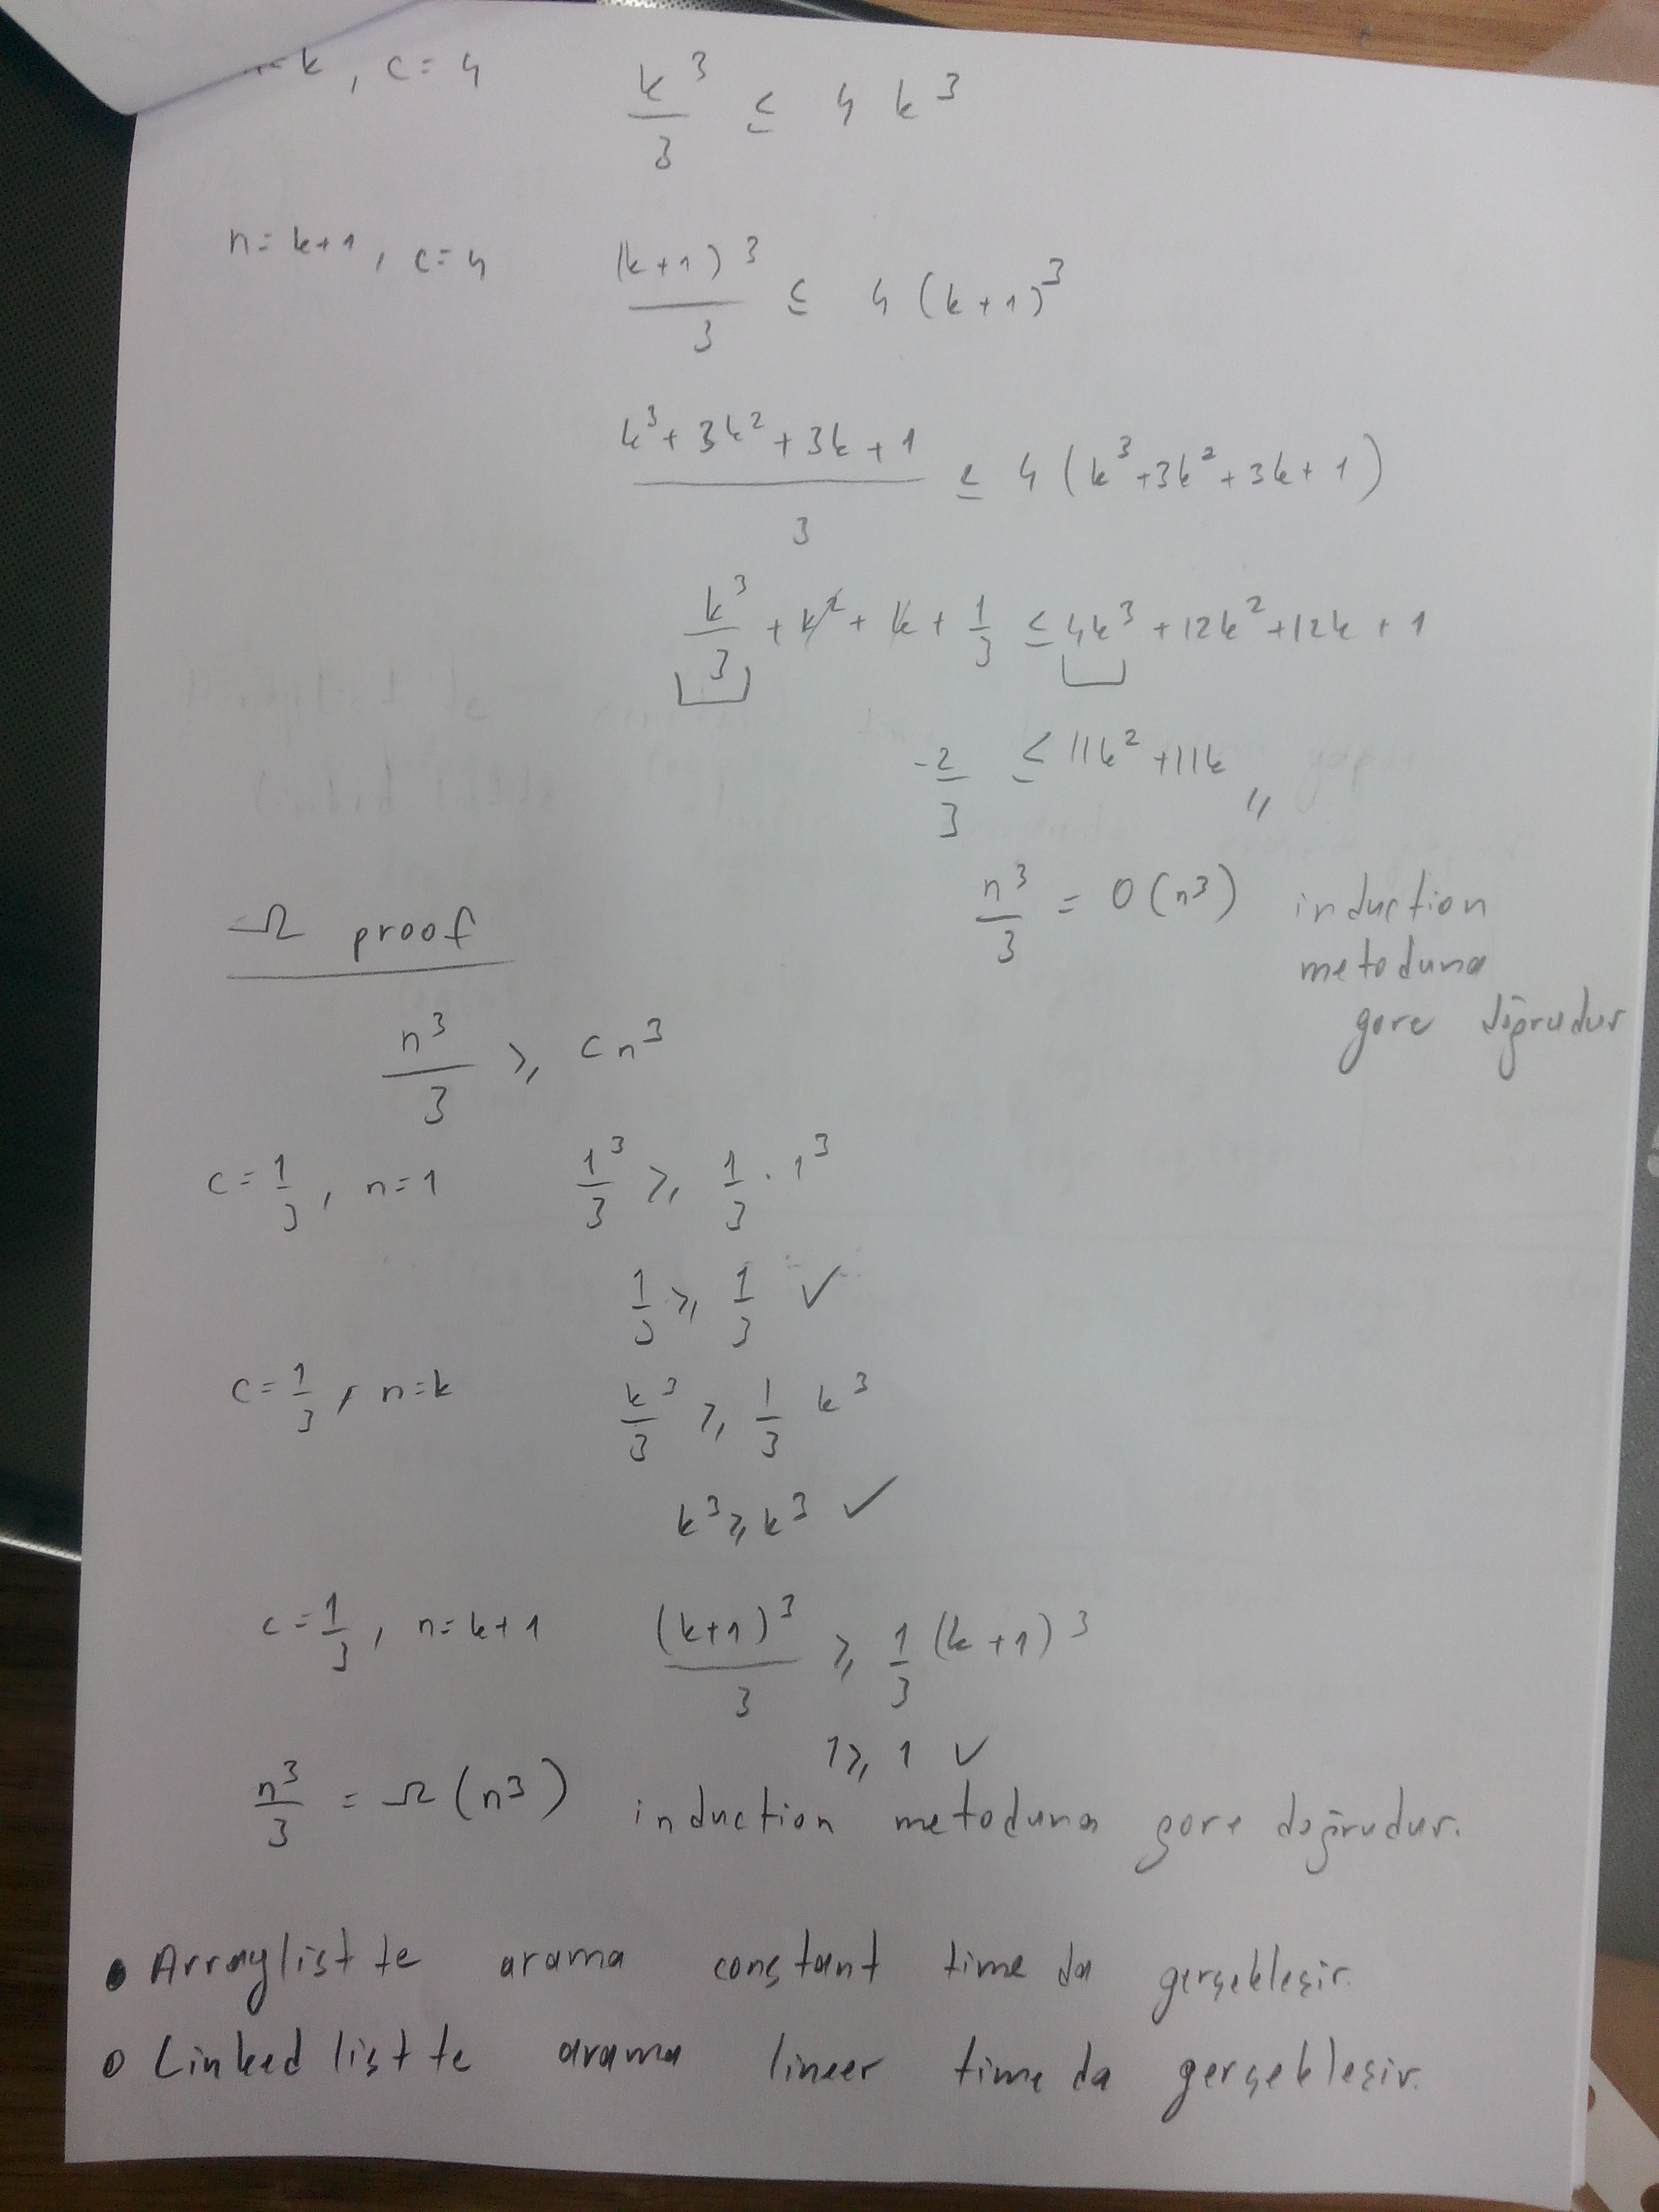 k, c=4 k³/3 ≤ 4k³
n=k+1, c=4 (k+1)³/3 ≤ 4(k+1)³
(k³+3k²+3k+1)/3 ≤ 4(k³+3k²+3k+1)
k³/3 + k² + k + 1/3 ≤ 4k³ + 12k² + 12k + 1
-2/3 ≤ 11k² + 11k //
n³/3 = O(n³) induction
metoduna
gore doğrudur
Ω proof
n³/3 ≥ cn³
c=1/3, n=1 1³/3 ≥ 1/3 · 1³
1/3 ≥ 1/3 ✓
c=1/3, n=k k³/3 ≥ 1/3 k³
k³ ≥ k³ ✓
c=1/3, n=k+1 (k+1)³/3 ≥ 1/3 (k+1)³
1 ≥ 1 ✓
n³/3 = Ω(n³) induction metoduna gore doğrudur.
• Arraylist te arama constant time da gerçekleşir.
• Linked list te arama lineer time da gerçekleşir.